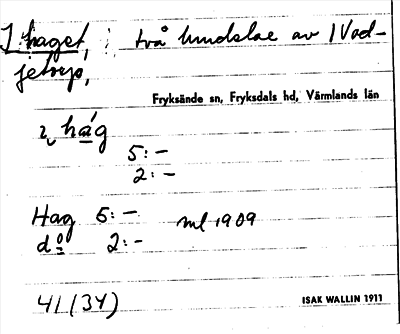 I haget, : två av 1 Vad-
jetorp,
Fryksände sn, Fryksdals hd, Värmlands län
ı hág
5:-
2:-
Hag 5:- ml 1909
do 2:-
41 (34)
ISAK WALLIN 1911